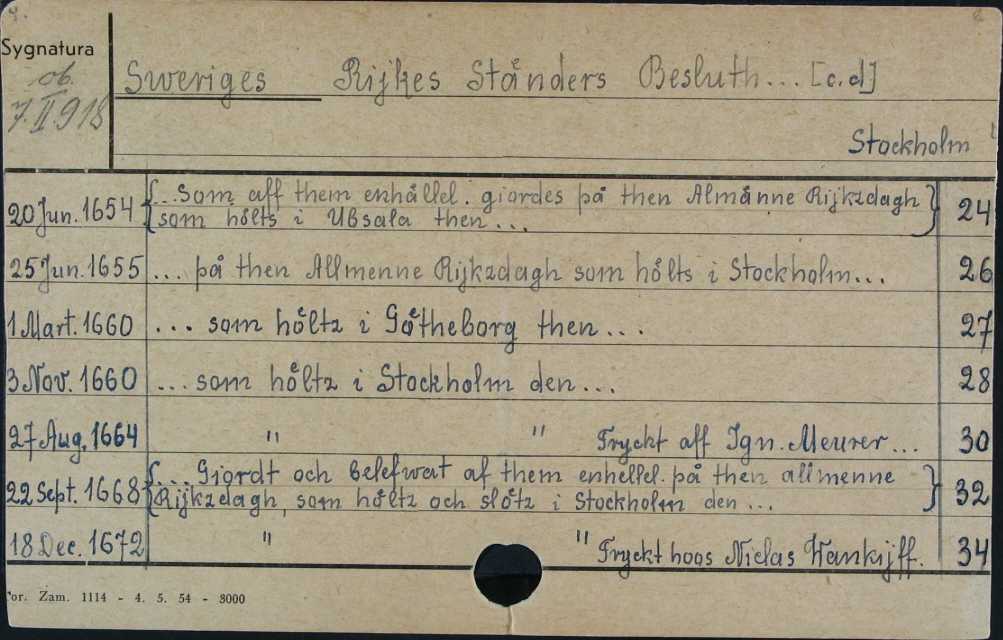 Sygnatura
ob.
7.II.918
Sweriges Rijkes Stånders Besluth... [c.d]
Stockholm
20 Jun. 1654 {...Som aff them enhållel. giordes på then Almånne Rijkzdagh } 24
som hölts i Ubsala then...
25 Jun. 1655 ... på then Allmenne Rijkzdagh som hölts i Stockholm... 26
1 Mart. 1660 ... som höltz i Götheborg then... 27
3 Nov. 1660 ... som höltz i Stockholm den... 28
27 Aug. 1664 " " Tryckt aff Ign. Meurer... 30
22 Sept. 1668 {... Giordt och belefwat af them enhellel. på then allmenne } 32
Rijkzdagh, som höltz och slötz i Stockholm den ...
18 Dec. 1672 " " Tryckt hoos Niclas Wankijff. 34
or. Zam. 1114 - 4. 5. 54 - 8000